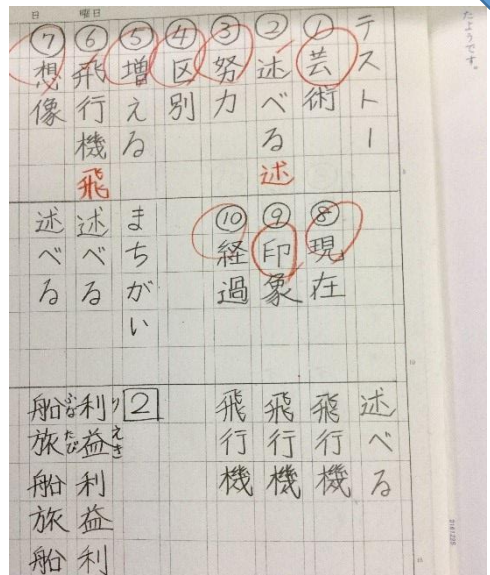 たようです。
日 曜日
テスト一
①芸術
②述べる 述
③努力
④区別
⑤増える
⑥飛行機 飛
⑦想像
⑧現在
⑨印象
⑩経過
まちがい
述べる
述べる
述べる
飛行機
飛行機
飛行機
2
りえき
利益利益利
ふなたび
船旅船旅船